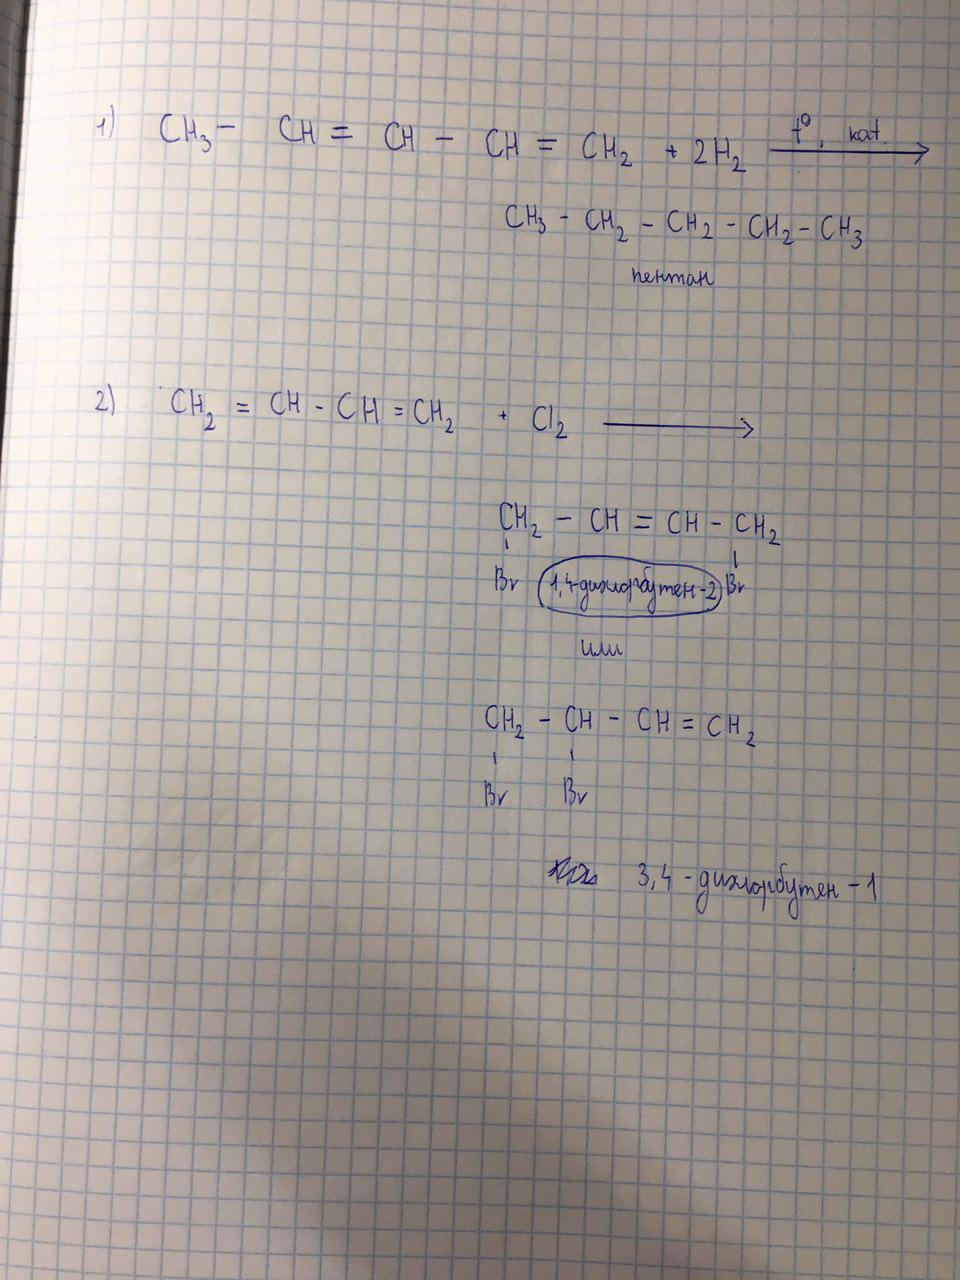 1) CH₃ – CH = CH – CH = CH₂ + 2H₂ t⁰, kat. →
CH₃ – CH₂ – CH₂ – CH₂ – CH₃
пентан
2) CH₂ = CH - CH = CH₂ + Cl₂ →
CH₂ – CH = CH – CH₂
Br 1,4-дихлорбутен-2 Br
или
CH₂ – CH – CH = CH₂
Br Br
3,4-дихлорбутен-1